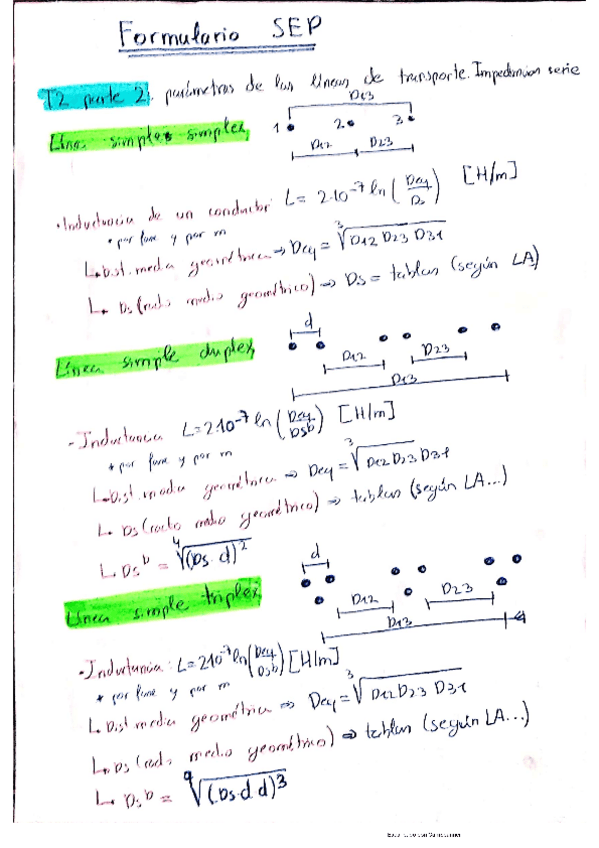 Formulario SEP
T2 parte 2: parámetros de las líneas de transporte. Impedancia serie
D13
Línea simples simplex,
1 2 3
D12 D23
• Inductancia de un conductor L = 2·10⁻⁷ ln (Deq/Ds) [H/m]
* por fase y por m
↳ Dist. media geométrica → Deq = ³√D12 D23 D31
↳ Ds (radio medio geométrico) → Ds = tablas (según LA)
d
Línea simple duplex,
D12 D23
D13
- Inductancia L = 2·10⁻⁷ ln (Deq/Dsᵇ) [H/m]
* por fase y por m
↳ Dist. media geométrica → Deq = ³√D12 D23 D31
↳ Ds (radio medio geométrico) → tablas (según LA...)
↳ Dsᵇ = ⁴√(Ds·d)²
d
Línea simple triplex,
D12 D23
D13
• Inductancia: L = 2·10⁻⁷ ln (Deq/Dsᵇ) [H/m]
* por fase y por m
↳ Dist media geométrica → Deq = ³√D12 D23 D31
↳ Ds (radio medio geométrico) → tablas (según LA...)
↳ Dsᵇ = ⁹√(Ds·d·d)³